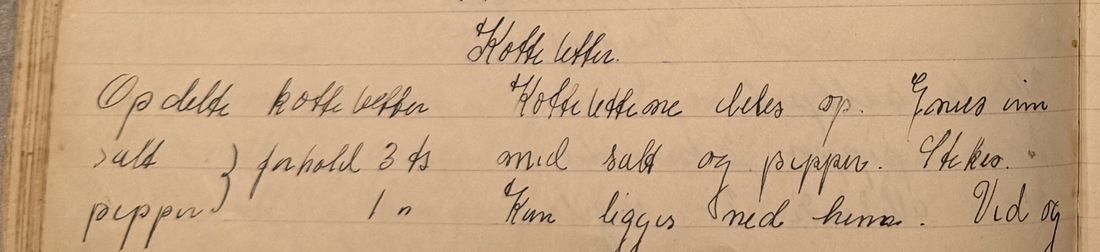 Kotteletter.
Opdelte kotteletter Kotteletterne deles op. Gnies inn
salt } forhold 3 ts med salt og pepper. Stekes.
pepper 1 " Kan legges ned herm. Ved og